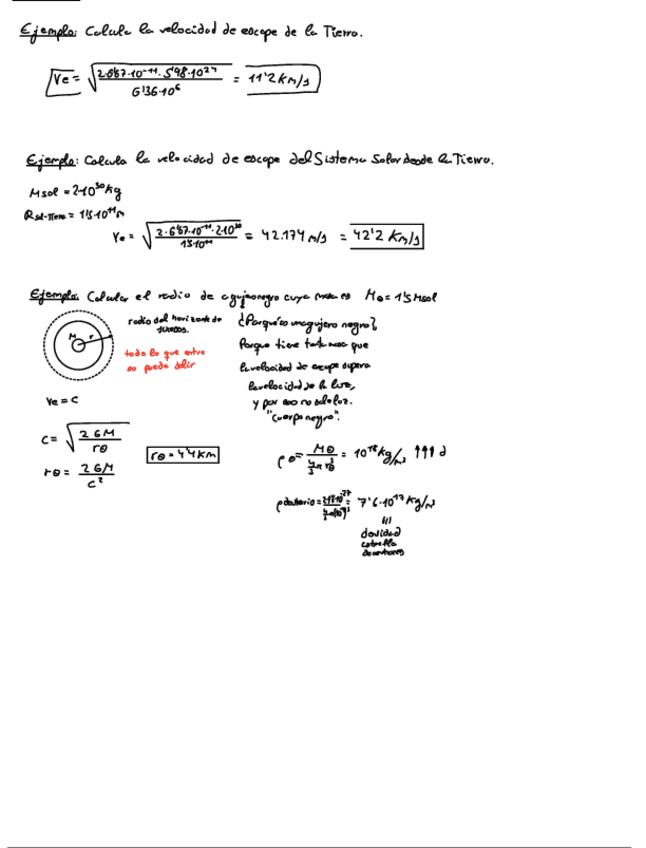 Ejemplo: Calcula la velocidad de escape de la Tierra.
Ve = √(2·6'67·10⁻¹¹·5'98·10²⁴ / 6'36·10⁶) = 11'2 Km/s
Ejemplo: Calcula la velocidad de escape del Sistema Solar desde la Tierra.
Msol = 2·10³⁰ kg
Rsol-Tierra = 1'5·10¹¹ m
Ve = √(2·6'67·10⁻¹¹·2·10³⁰ / 1'5·10¹¹) = 42.174 m/s = 42'2 Km/s
Ejemplo: Calcular el radio de agujero negro cuya masa es M● = 1'5 Msol
radio del horizonte de sucesos.
M r
todo lo que entre no puede salir
¿Porqué es un agujero negro?
Porque tiene tanta masa que
la velocidad de escape supera
la velocidad de la luz,
y por eso no sale luz.
"Cuerpo negro".
Ve = C
C = √(2GM / r●)
r● = 2GM / C²
r● = 4'4 KM
ρ● = M● / (4/3 π r●³) = 10¹⁸ kg/m³ !!!
= 7'6·10¹⁷ Kg/m³
densidad
estrella
de neutrones